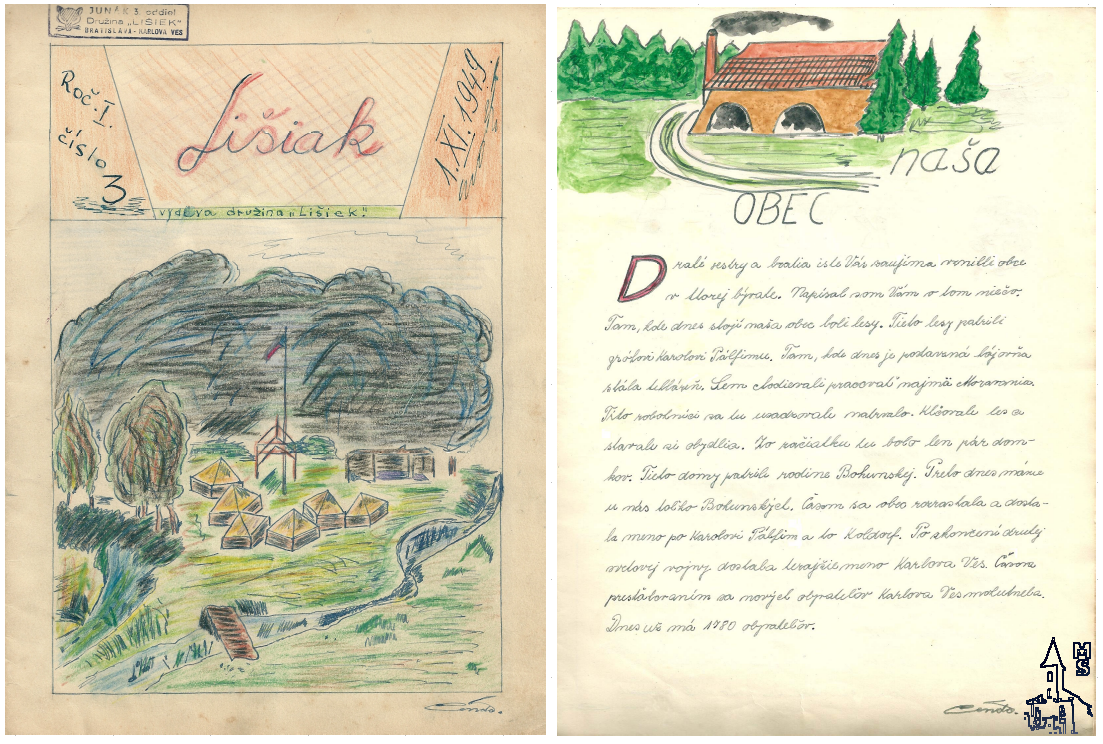 JUNÁK 3. oddiel
Družina „LIŠIEK"
BRATISLAVA - KARLOVA VES
Roč. I.
číslo
3
Lišiak
1. XI. 1949.
vydáva družina „Lišiek".
naša
OBEC
Drahé sestry a bratia iste Vás zaujíma vznik obce
v ktorej bývate. Napísal som Vám o tom niečo.
Tam, kde dnes stojí naša obec boli lesy. Tieto lesy patrili
grófovi Karolovi Pálfimu. Tam, kde dnes je
stála tehláreň. Sem chodievali pracovať najmä Moravania.
Títo robotníci sa tu usadzovali natrvalo. Klčovali les a
stavali si obydlia. Zo začiatku tu bolo len pár dom-
kov. Tieto domy patrili rodine Bohunskej. Preto dnes máme
u nás toľko Bohunských. Časom sa obec rozrastala a dosta-
la meno po Karolovi Pálfim a to Koldorf. Po skončení druhej
svetovej vojny dostala terajšie meno Karlova Ves. Časom
presťahovaním sa nových obyvateľov Karlova Ves
Dnes už má 1780 obyvateľov.
Čendo.
Čendo.
MS